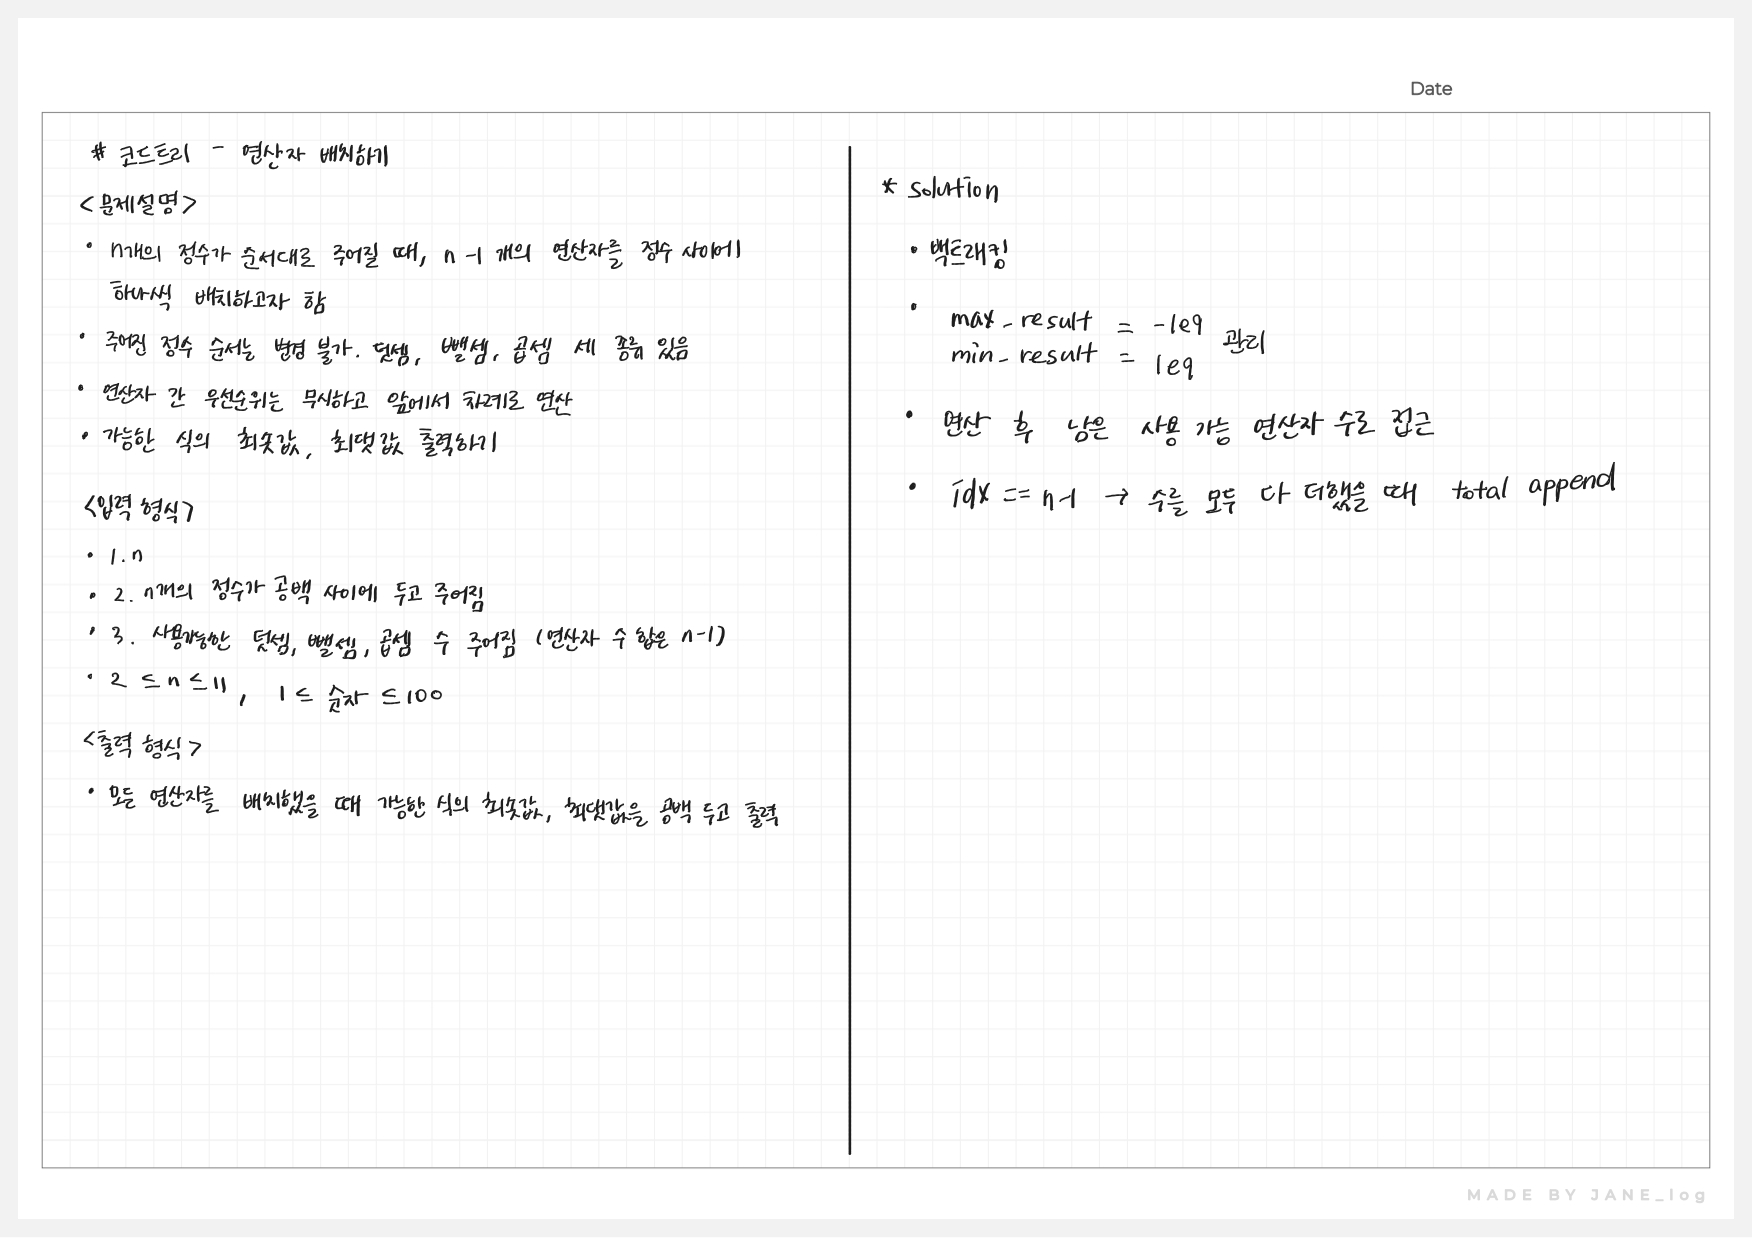 Date
# 코드트리 - 연산자 배치하기
<문제설명>
• n개의 정수가 순서대로 주어질 때, n-1개의 연산자를 정수 사이에
하나씩 배치하고자 함
• 주어진 정수 순서는 변경 불가. 덧셈, 뺄셈, 곱셈 세 종류 있음
• 연산자 간 우선순위는 무시하고 앞에서 차례로 연산
• 가능한 식의 최솟값, 최댓값 출력하기
<입력 형식>
• 1. n
• 2. n개의 정수가 공백 사이에 두고 주어짐
• 3. 사용가능한 덧셈, 뺄셈, 곱셈 수 주어짐 (연산자 수 합은 n-1)
• 2 ≤ n ≤ 11, 1 ≤ 숫자 ≤ 100
<출력 형식>
• 모든 연산자를 배치했을 때 가능한 식의 최솟값, 최댓값을 공백 두고 출력
* solution
• 백트래킹
• max_result = -1e9
min_result = 1e9 관리
• 연산 후 남은 사용 가능 연산자 수로 접근
• idx == n-1 → 수를 모두 다 더했을 때 total append
MADE BY JANE_log